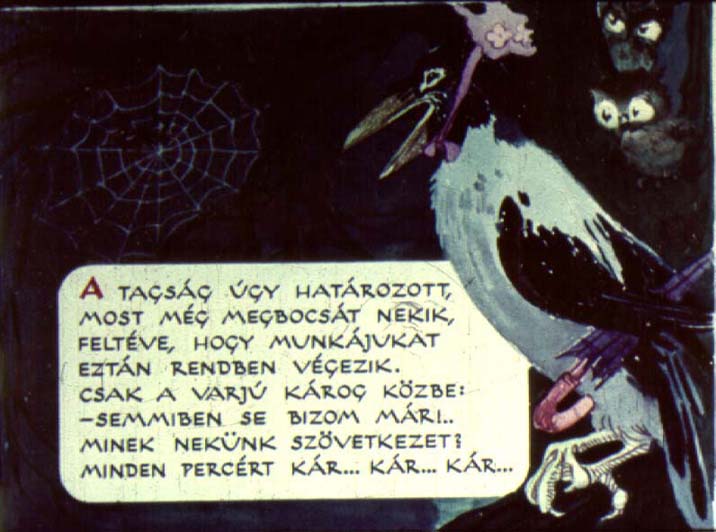 A TAGSÁG ÚGY HATÁROZOTT,
MOST MÉG MEGBOCSÁT NEKIK,
FELTÉVE, HOGY MUNKÁJUKAT
EZTÁN RENDBEN VÉGEZIK.
CSAK A VARJÚ KÁROG KÖZBE:
–SEMMIBEN SE BIZOM MÁR!..
MINEK NEKÜNK SZÖVETKEZET?
MINDEN PERCÉRT KÁR... KÁR... KÁR...